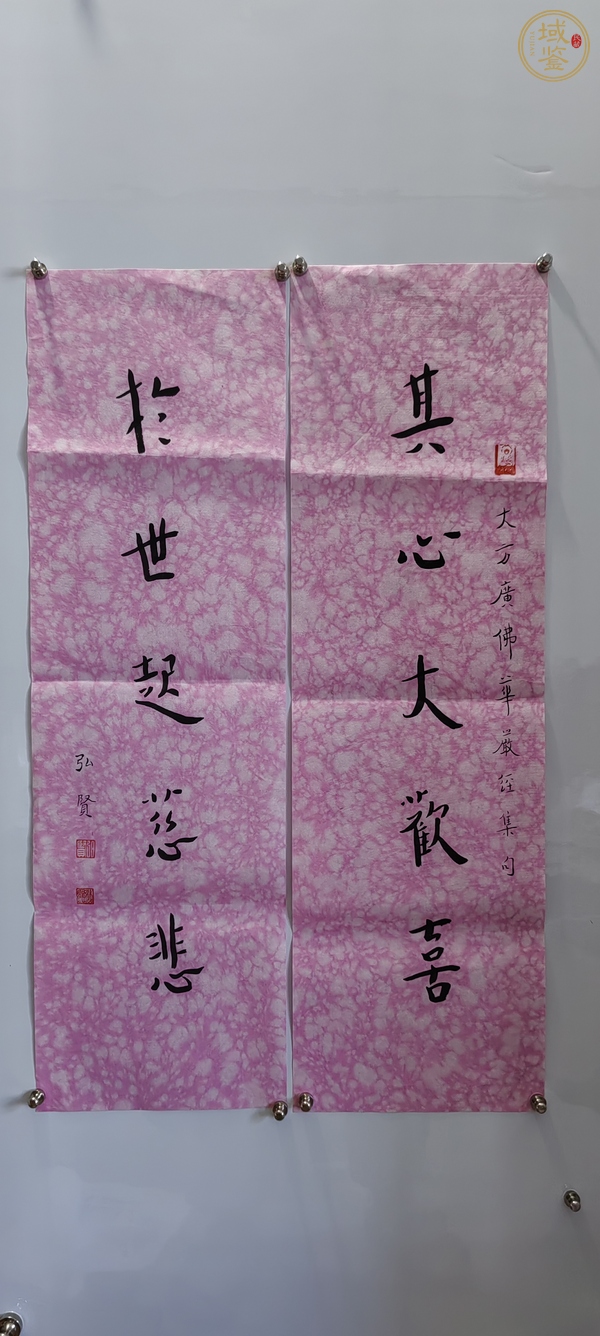 大方廣佛華嚴經集句
其心大歡喜
於世起慈悲
弘賢
域鑒